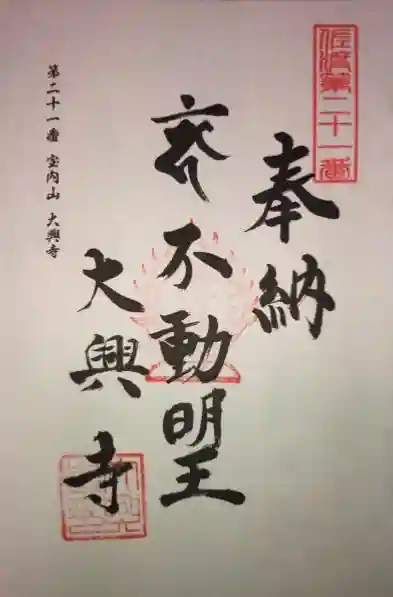 佐渡第二十一番
奉納
不動明王
大興寺
第二十一番 室内山 大興寺